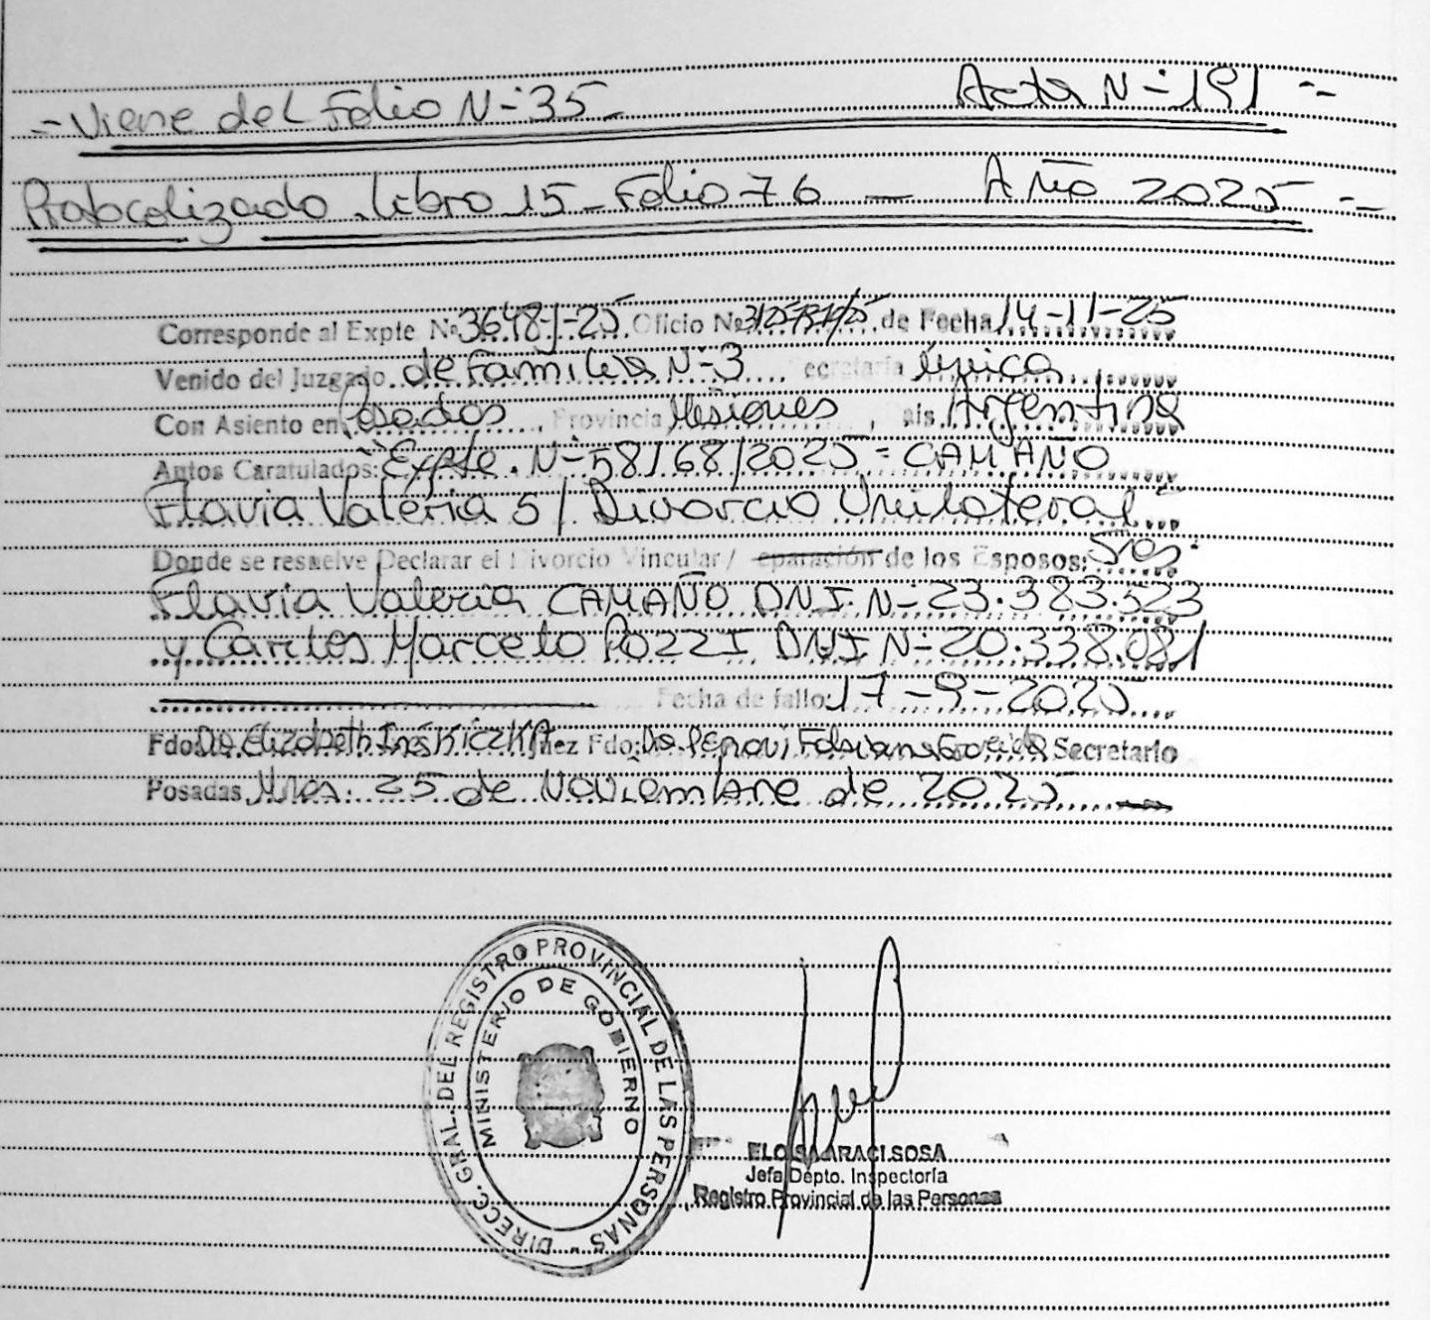 - Viene del Folio N-35 - Acta N-191 --
Protocolizado Libro 15 - Folio 76 — Año 2025 --
Corresponde al Expte Nº 3648-J-25 Oficio Nº de Fecha 14-11-25
Venido del Juzgado de Familia N-3 Secretaría Única
Con Asiento en Posadas, Provincia Misiones, País Argentina
Autos Caratulados: Expte. N-58168/2025 = CAMAÑO
Flavia Valeria S/ Divorcio Unilateral
Donde se resuelve Declarar el Divorcio Vincular/ separación de los Esposos: Sres.
Flavia Valeria CAMAÑO DNI. N-23.383.523
y Carlos Marcelo POZZI DNI N-20.338.081
Fecha de fallo: 17-9-2025
Fdo: Dra. Elizabeth Inés Juez Fdo: Dra. Secretario
Posadas, Mnes. 25 de Noviembre de 2025
DIRECC. GRAL. DEL REGISTRO PROVINCIAL DE LAS PERSONAS -
MINISTERIO DE GOBIERNO
ELOISA ARACI SOSA
Jefa Depto. Inspectoría
Registro Provincial de las Personas